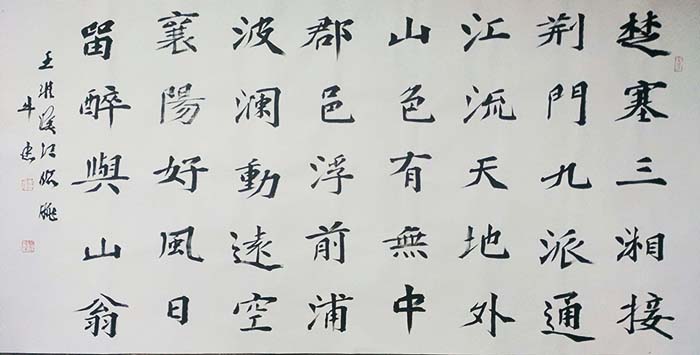 楚塞三湘接
荆門九派通
江流天地外
山色有無中
郡邑浮前浦
波澜動遠空
襄陽好風日
留醉與山翁
王維漢江臨眺
牛忠